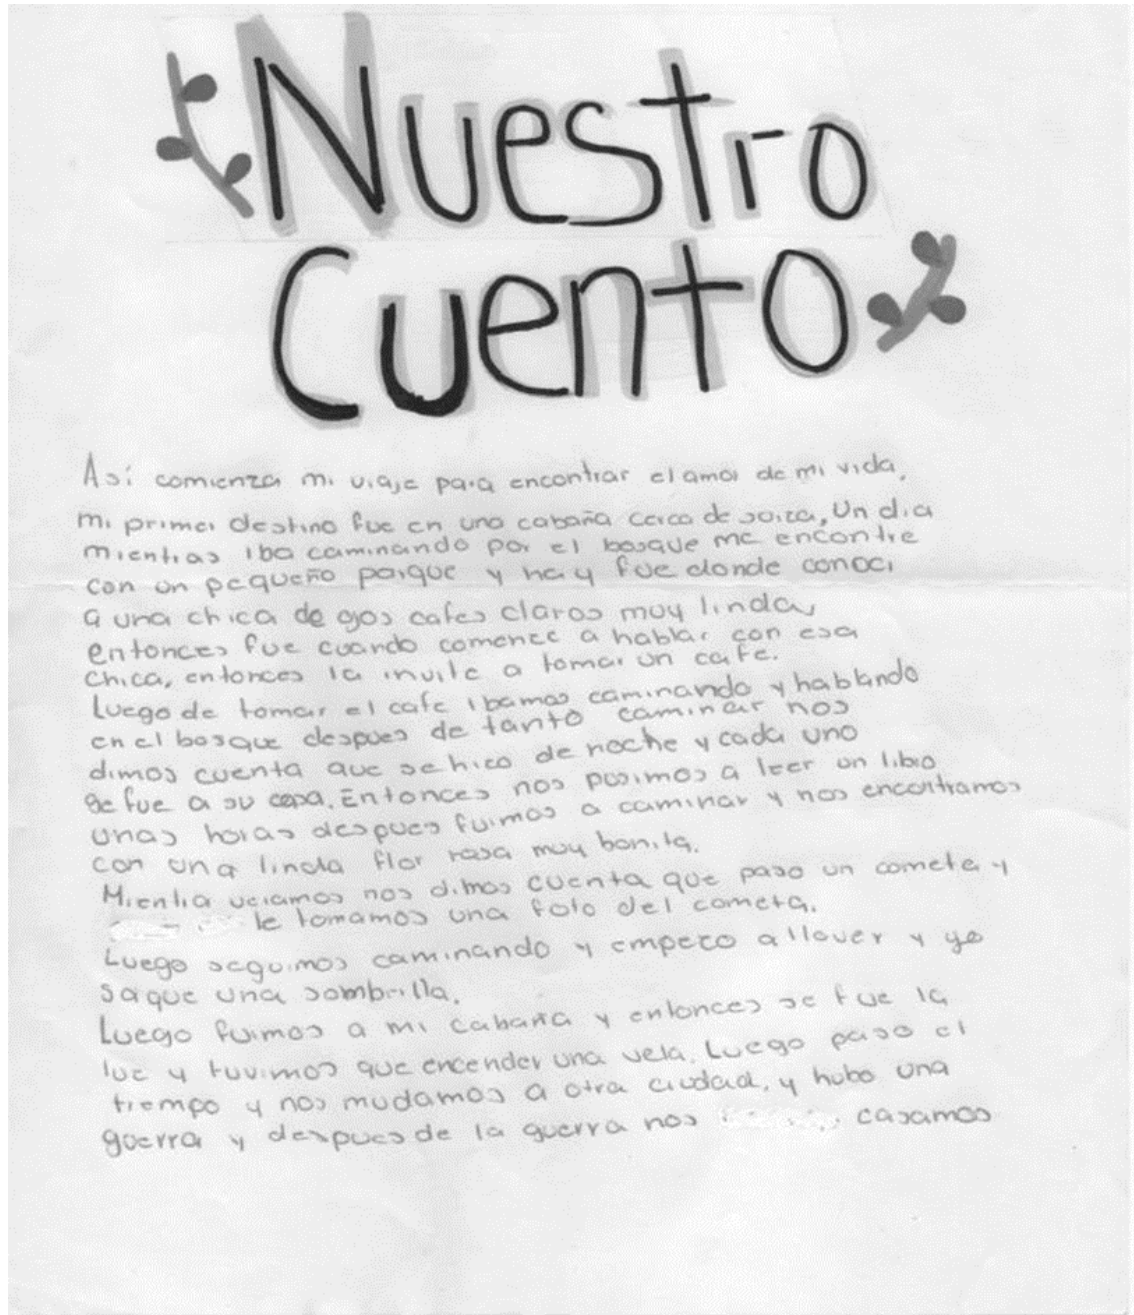 Nuestro
Cuento
Así comienza mi viaje para encontrar el amor de mi vida.
mi primer destino fue en una cabaña cerca de soiza, Un dia
mientras iba caminando por el bosque me encontre
con un pequeño parque y hay fue donde conoci
a una chica de ojos cafes claros muy linda,
entonces fue cuando comence a hablar con esa
chica, entonces la invite a tomar un cafe.
Luego de tomar el cafe ibamos caminando y hablando
en el bosque despues de tanto caminar nos
dimos cuenta que se hico de noche y cada uno
se fue a su casa. Entonces nos pusimos a leer un libro
unas horas despues fuimos a caminar y nos encontramos
con una linda flor rasa muy bonita.
Mientra veiamos nos dimos cuenta que paso un cometa y
le tomamos una foto del cometa.
Luego seguimos caminando y empeco a llover y yo
saque una sombrilla.
Luego fuimos a mi cabaña y entonces se fue la
luc y tuvimos que encender una vela. Luego paso el
tiempo y nos mudamos a otra ciudad, y hubo una
guerra y despues de la guerra nos casamos